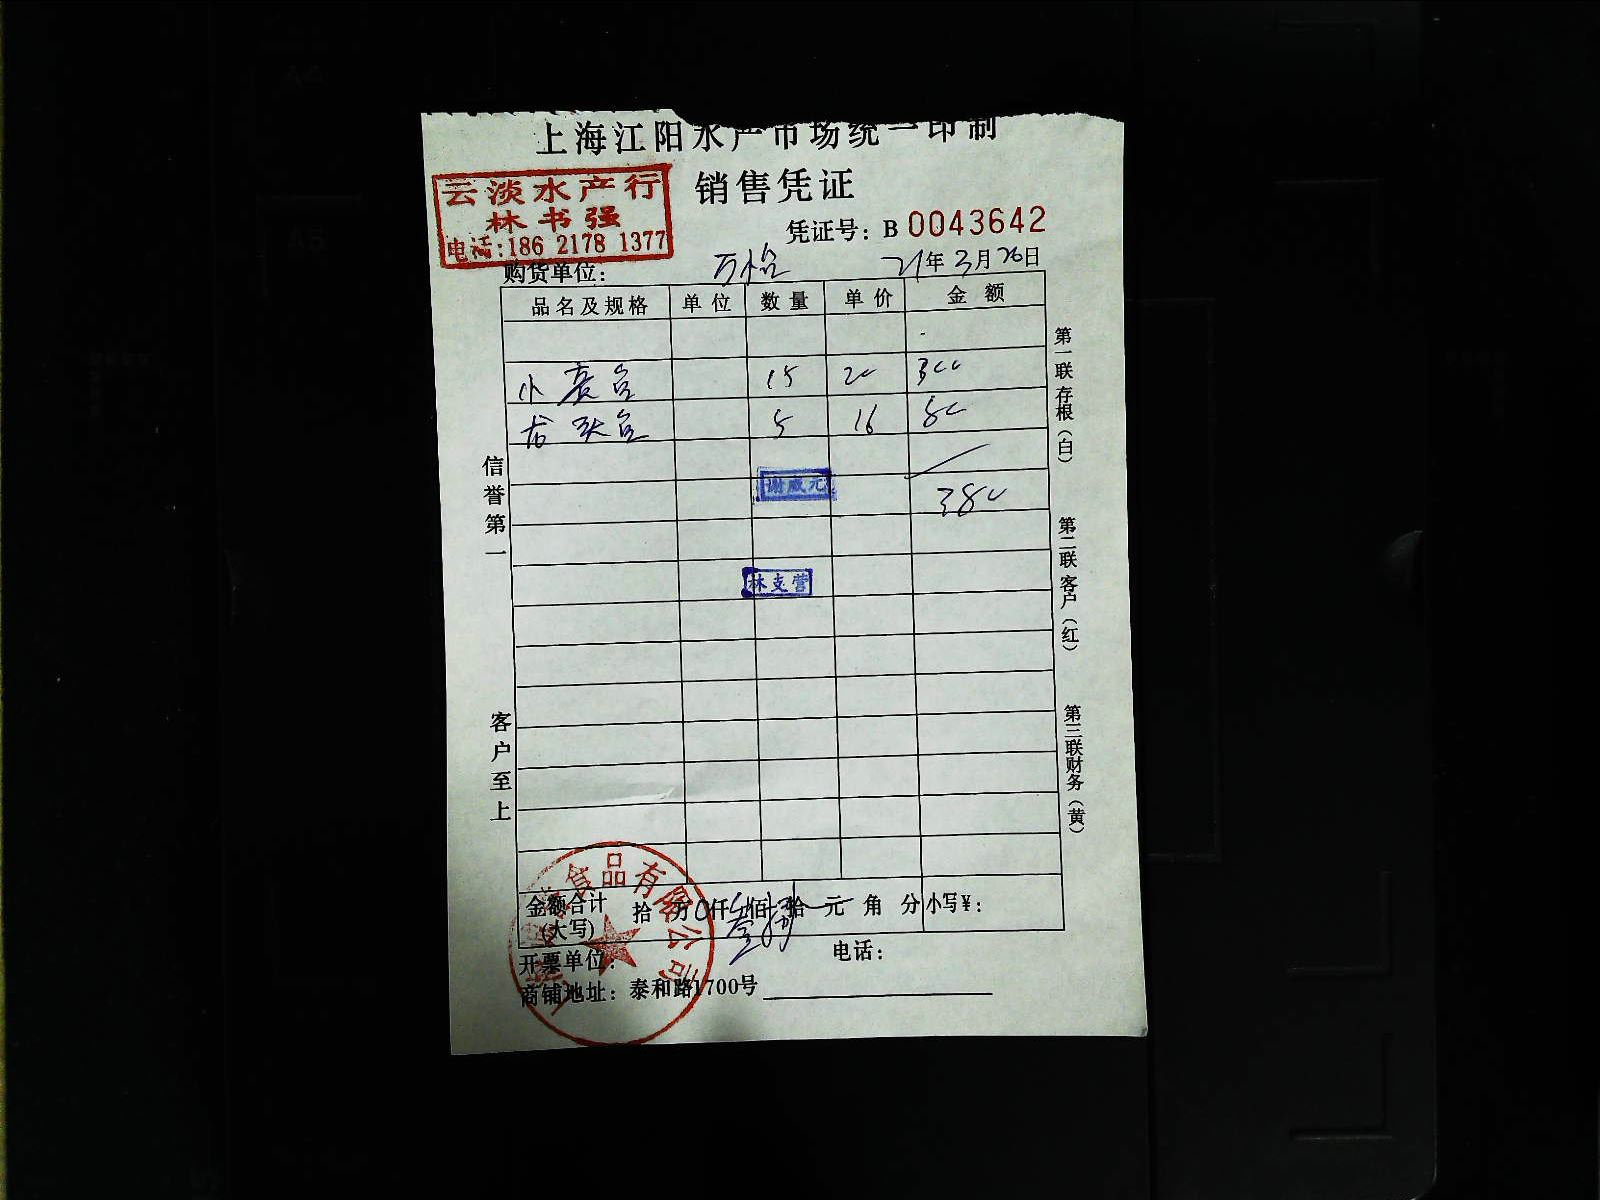 上海江阳水产市场统一印制
销售凭证
云淡水产行
林书强
电话:186 2178 1377
凭证号: B 0043642
购货单位: 万格 21年3月26日
品名及规格 单位 数量 单价 金额
小黄鱼 15 20 300
龙头鱼 5 16 80
谢威元
380
林支营
信誉第一
客户至上
第一联 存根(白)
第二联 客户(红)
第三联 财务(黄)
金额合计(大写) 拾 万 0仟 叁佰 捌拾 元 角 分 小写¥:
食品有限公司
开票单位: 电话:
商铺地址: 泰和路1700号